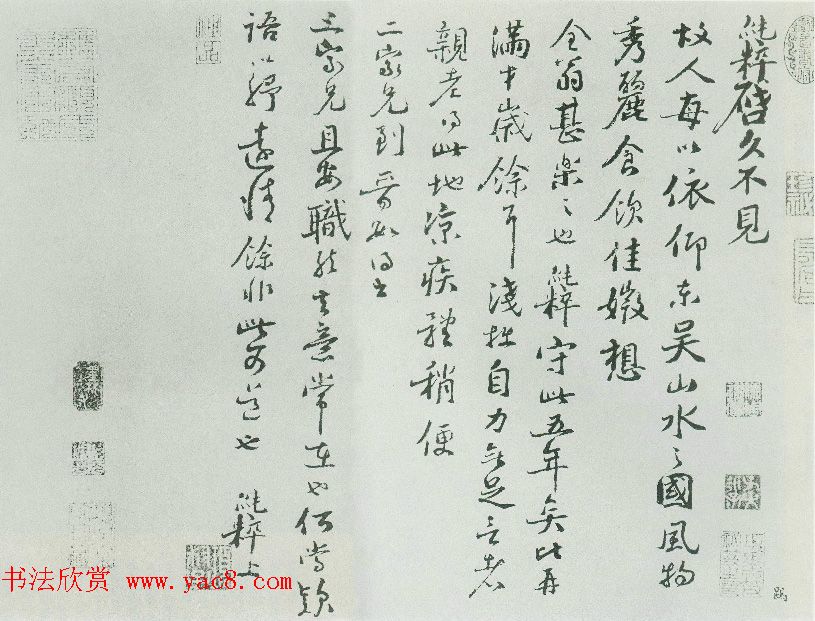 純粹啓久不見
故人每以依仰東吴山水之國風物
秀麗食飲佳媺想
全翁甚樂樂也純粹守此五年矣比再
滿半歲餘耳淺拙自力無足言者
親老得此地凉疾體稍便
二家兄到晉如得書
三家兄且安職然其意常在也何當款
語以紓遠情餘非此可道也 純粹上
书法欣赏 www.yac8.com